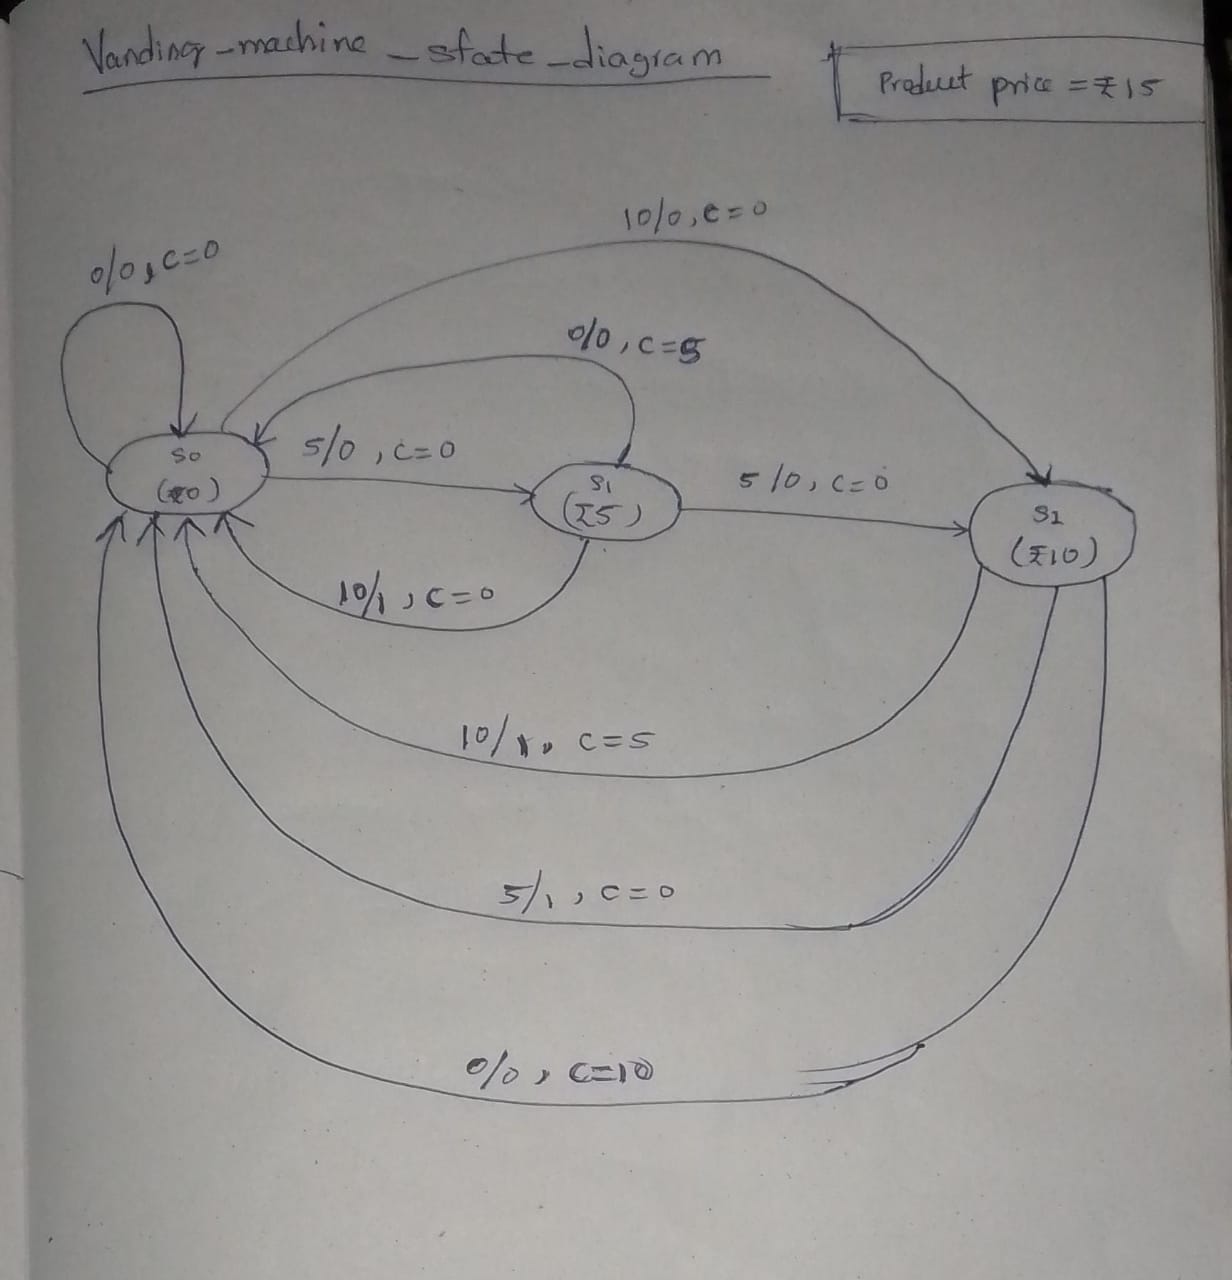 Vanding-machine-state-diagram
Product price = ₹15
10/0, c=0
0/0, c=0
0/0, c=5
5/0, c=0
S0
(₹0)
S1
(₹5)
5/0, c=0
S2
(₹10)
10/1, c=0
10/1, c=5
5/1, c=0
0/0, c=10